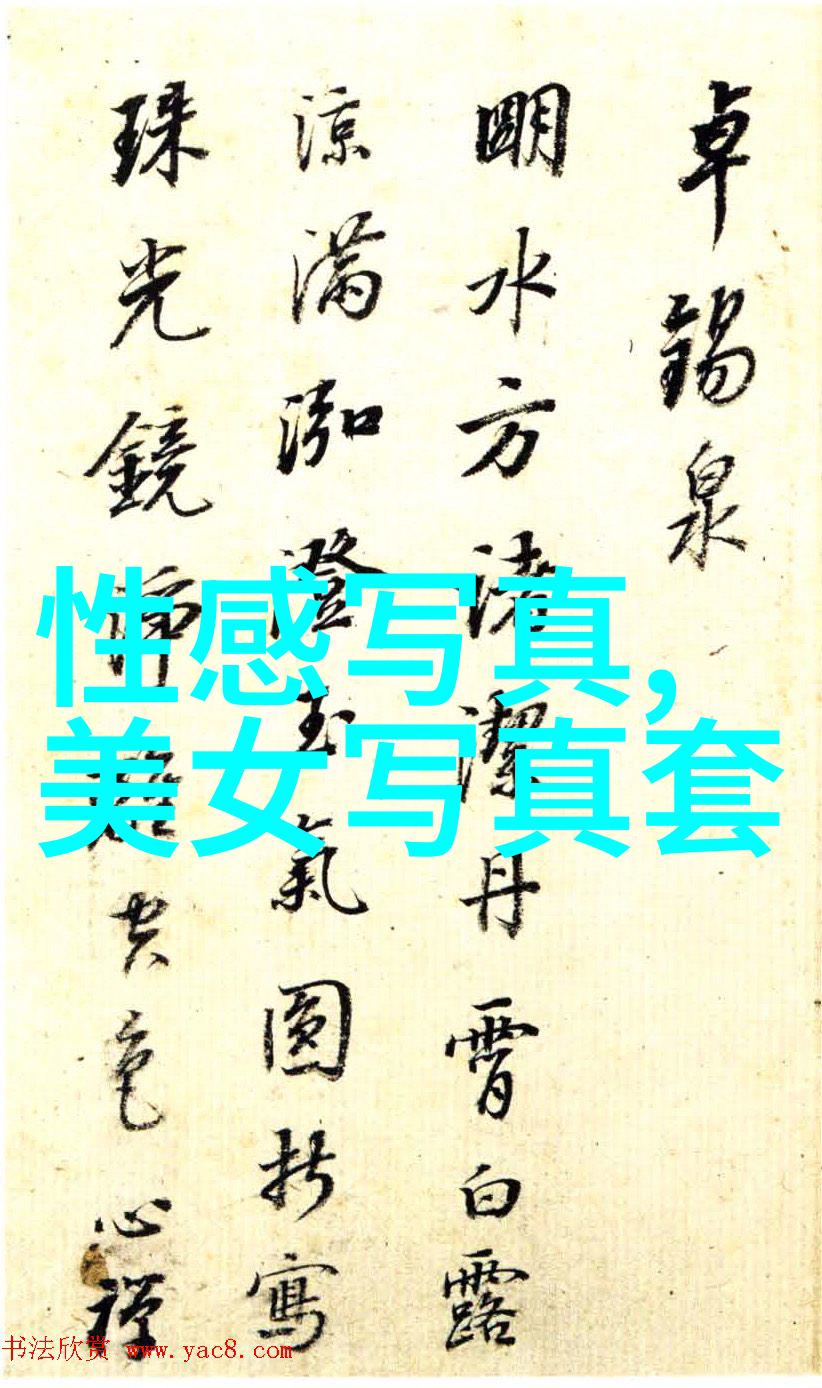 卓錫泉
明水方渚潔丹霄白露
涼滿泓澄玉氣圓折寫
珠光鏡諦離空色心禪
性感写真,
美女写真套
书法欣赏 www.yac8.com